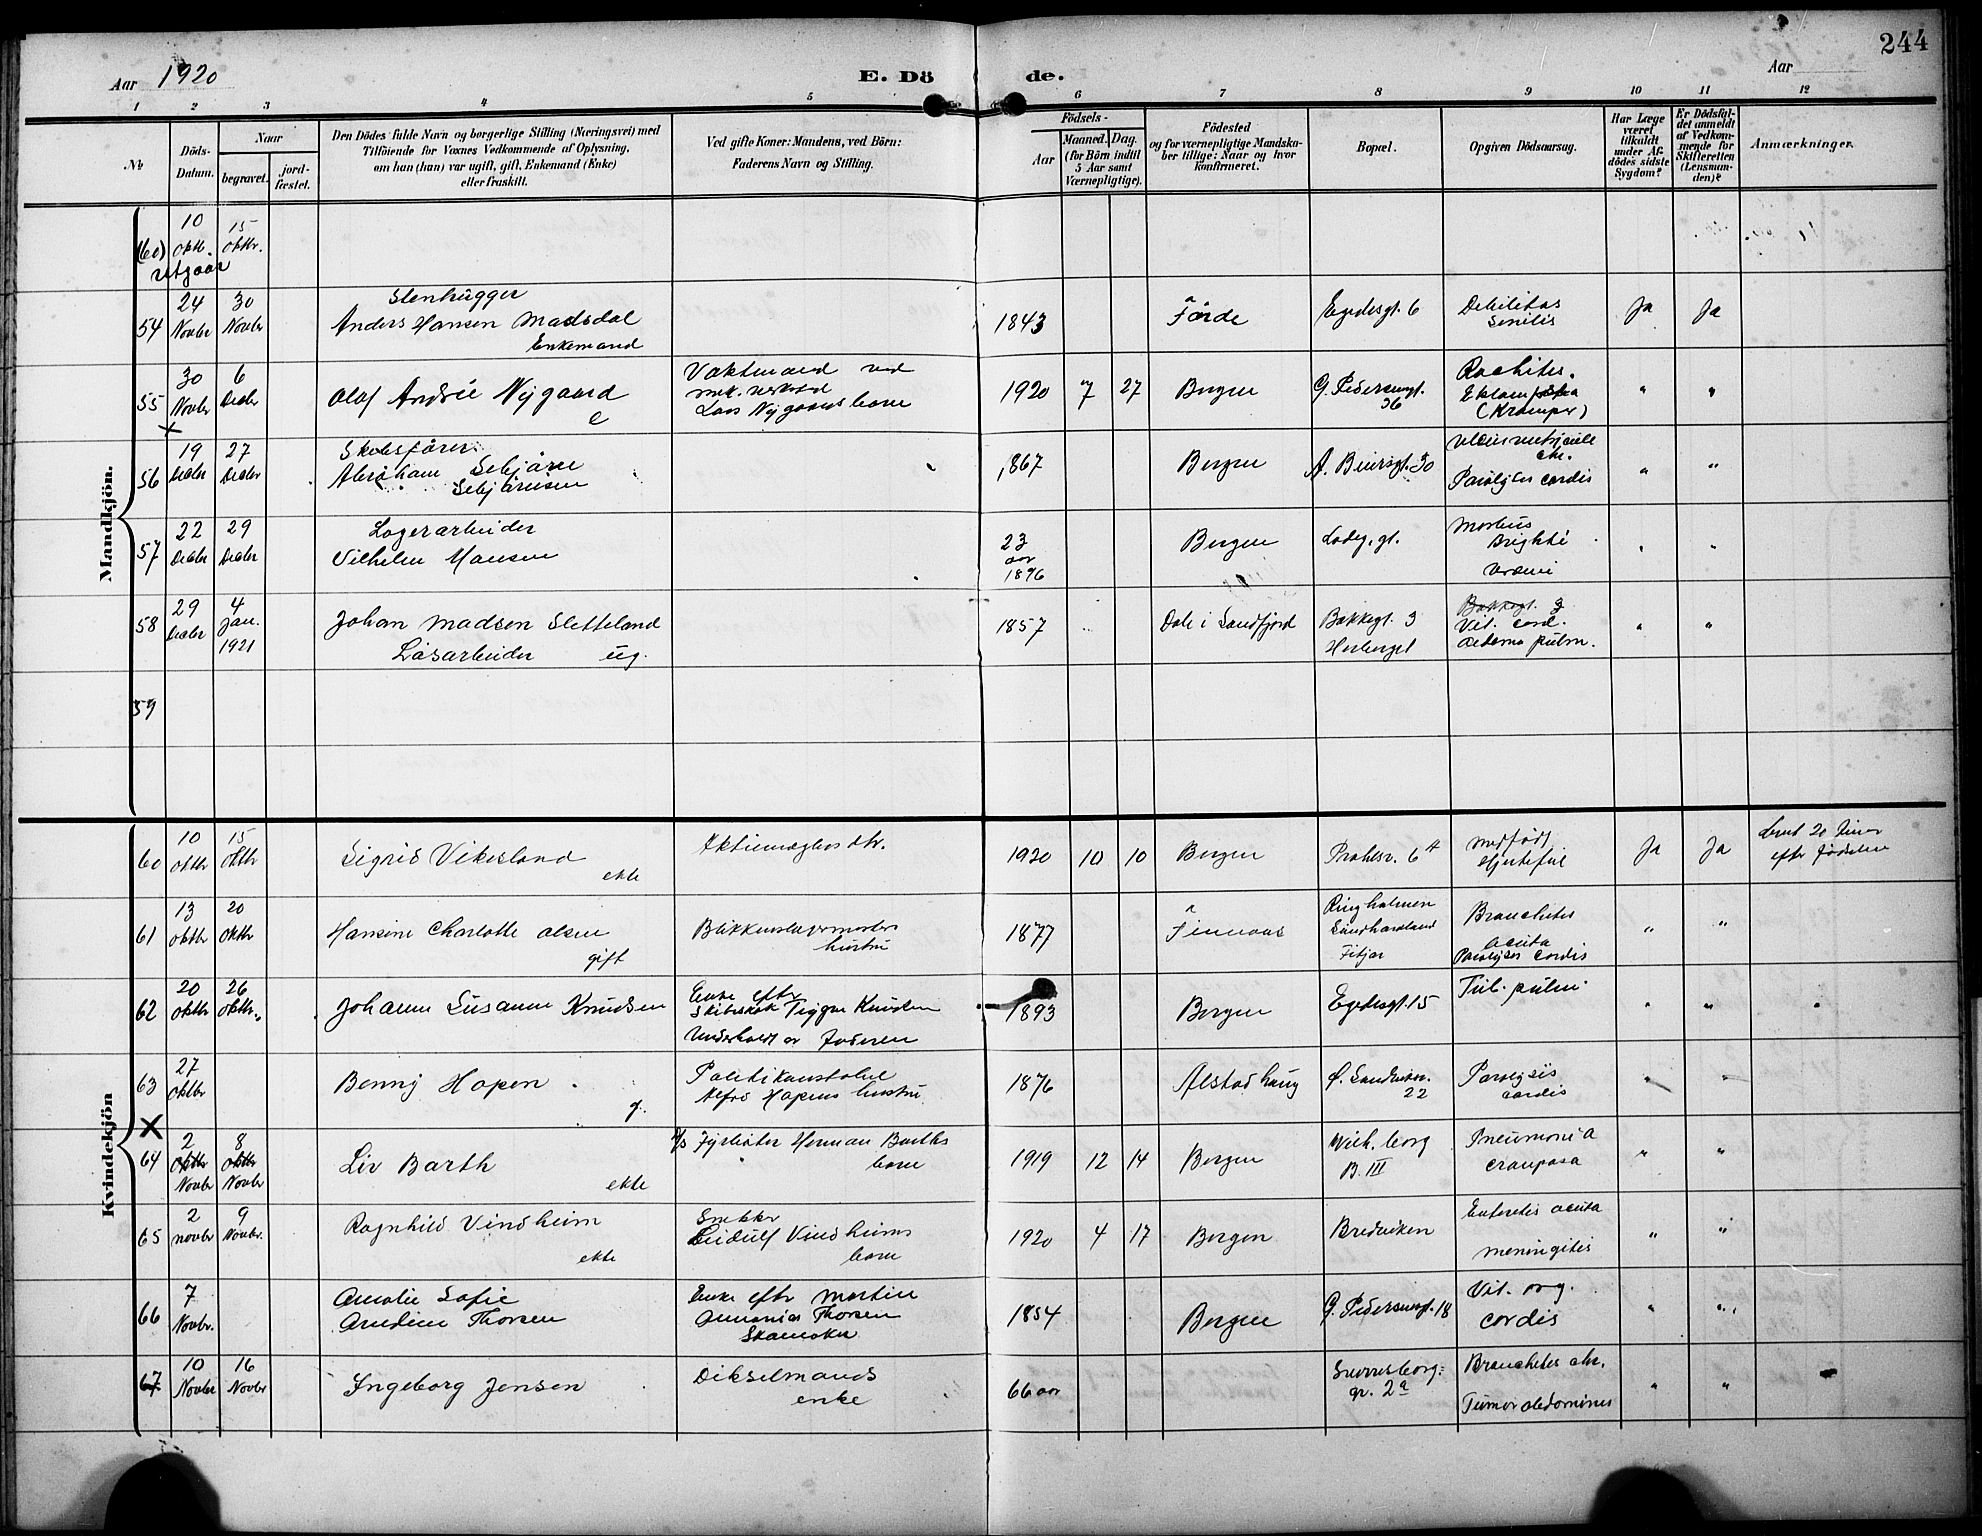 244
Aar 1920
E. Dö
de.
Aar
1 2 3 4 5 6 7 8 9 10 11 12
No
Döds-
Datum.
Naar
begravet.
jord-
fæstet.
Den Dödes fulde Navn og borgerlige Stilling (Næringsvei) med
Tilföiende for Voxnes Vedkommende af Oplysning,
om han (hun) var ugift, gift, Enkemand (Enke)
eller fraskilt.
Ved gifte Koner: Mandens, ved Börn:
Faderens Navn og Stilling.
Födsels-
Aar
Maaned.
Dag.
(for Börn indtil
5 Aar samt
Værnepligtige).
Födested
og for værnepligtige Mandska-
ber tillige: Naar og hvor
konfirmeret.
Bopæl.
Opgiven Dödsaarsag.
Har Læge
været
tilkaldt
under Af-
dödes sidste
Sygdom?
Er Dödsfal-
det anmeldt
af Vedkom-
mende for
Skifteretten
(Lensman-
den)?
Anmærkninger.
Mandkjön.
(60) 10 Oktb. 15 Oktbr.
utgaar
54 24 Novbr 30 Novbr
Stenhugger
Anders Hansen Madsdal
Enkemand
1843 Förde Egedesgt. 6
Debilitas
Senilis
Ja Ja
55 30 Novbr 6 Decbr
Olaf Andréé Nygaard
e
Vaktmand ved
mek. verksted
Lars Nygaards barn
1920 7 27 Bergen
G. Pedersensgt.
36
Rachitis.
Eklampsia
(Kramper)
" "
x
56 19 Decbr 27 Decbr
Abraham Sebjörn
Sebjörnsen
1867 Bergen A. Biersgt. 30
chr.
Paralysis cordis
" "
57 22 Decbr 29 Decbr
Lagerarbeider
Vilhelm Hansen
23
aar
1896
Bergen Ladeg.gt.
Morbus
Brighti
Uræmi
" "
58 29 Decbr 4 Jan. 1921
Johan Madsen Sletteland
Løsarbeider ug.
1857 Dale i Sundfjord
Bakkegt. 3
Herberget
Bakkegt. 3
Vit. cord.
Oedema pulm.
" "
59
Kvindekjön
60 10 Oktbr 15 Oktbr
Sigrid Vikesland
ekte
Aktiemæglers dtr.
1920 10 10 Bergen
medfödt
Hjertefeil
Ja Ja
levet 20 timer
efter födselen
61 13 Oktbr 20 Oktbr
Hansine Charlotte Olsen
gift
Blikkenslagermesters
hustru
1877 Finnaas
Ringholmen
Sundhordland
Fitjar
Bronchitis
acuta
Paralysis cordis
" "
62 20 Oktbr 26 Oktbr.
Johanne Susanne Knudsen
Enke efter
Underholdt av Faderen
1893 Bergen Egedesgt. 15
Tub. pulm.
" " "
63 27 Oktbr
Benny Hopen
g.
Politikonstabel
Alfred Hopens hustru
1876 Alstadhaug
22
Paralysis
cordis
" "
X
64 2 Oktbr Novbr 8 Oktbr Novbr
Liv Barth
ekte
Fyrböter Herman Barths
barn
1919 12 14 Bergen
Wilh. borg
B. III
Pneumonia
crouposa
" "
65 2 Novbr 9 Novbr.
Ragnhild Vindheim
ekte
Snekker
Eidulf Vindheims
barn
1920 4 17 Bergen
Enteritis acuta
meningitis
" "
66 7 Novbr.
Amalie Sofie
Arndine Thorsen
Enke efter Martin
Ammonius Thorsen
Skomaker
1854 Bergen G. Pedersensgt. 18
Vit. org.
cordis
" "
67 10 Novbr 16 Novbr
Ingeborg Jensen
Dikselmands
enke
66 aar
Sverresborg:
gr. 2a
Bronchitis chr.
Tumor abdominis
" "